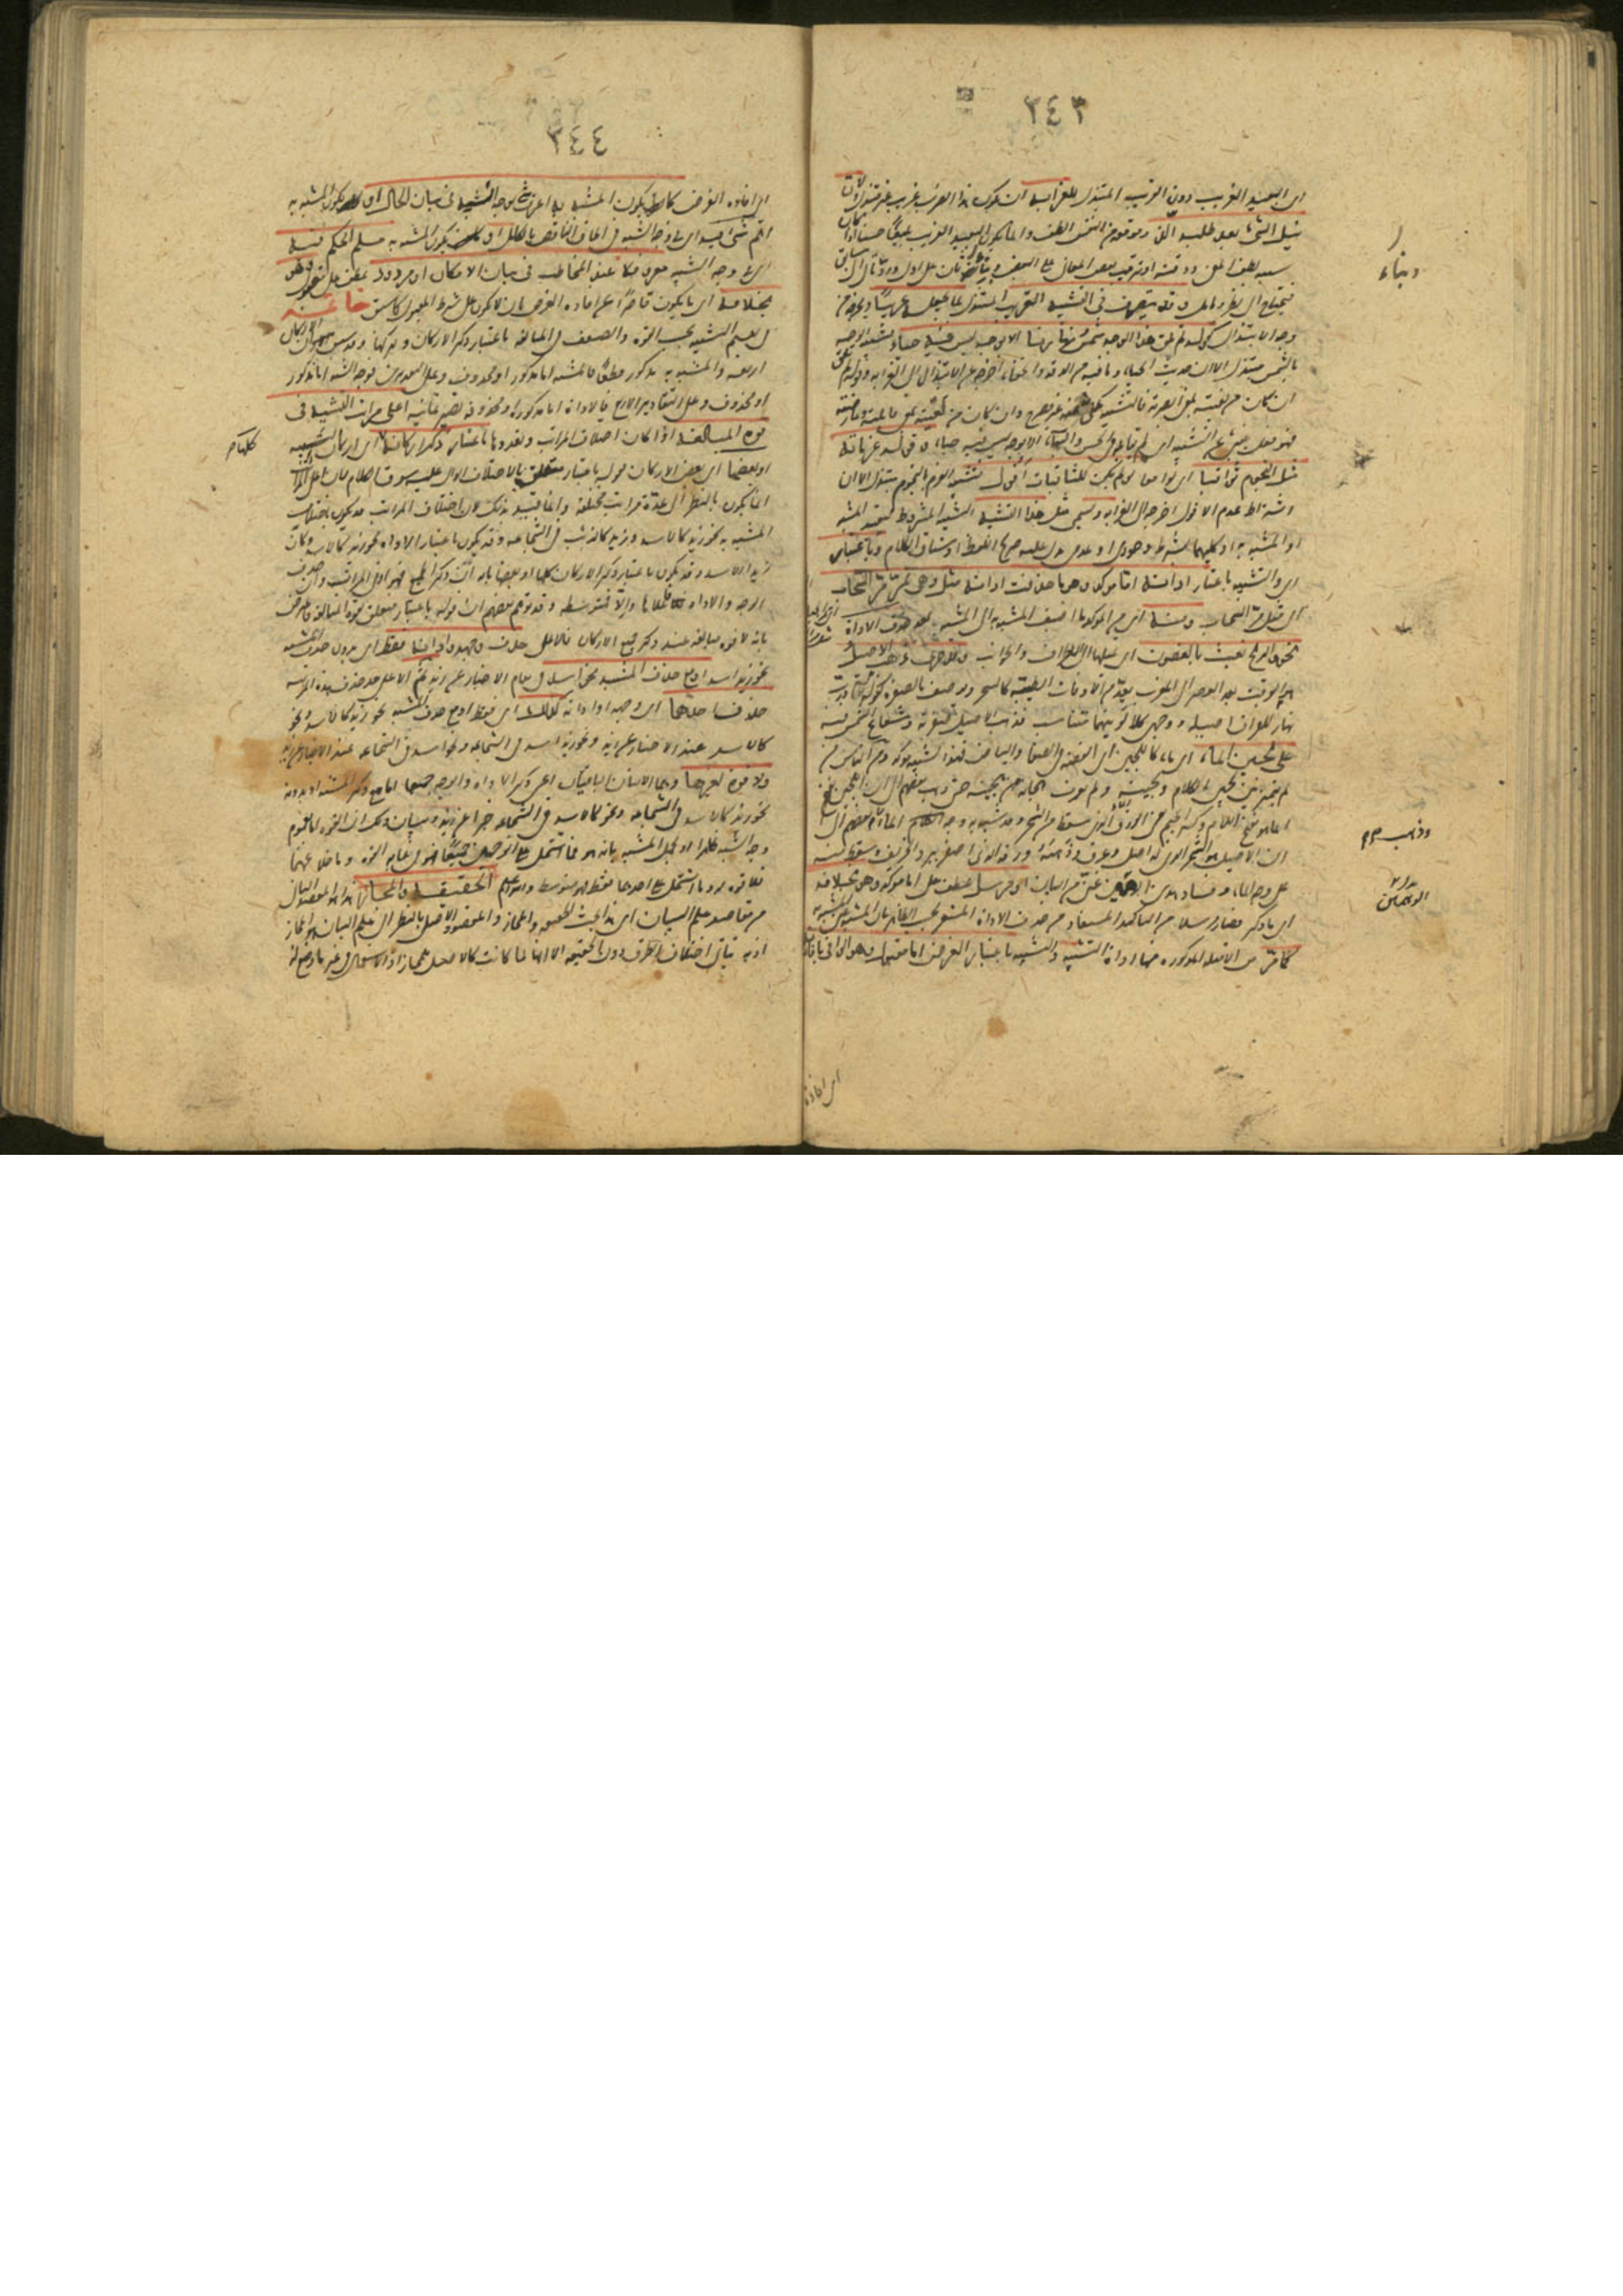 ٣٤٣
اى البعيد الغريب دون القريب المبتذل للغرابة اى لكون هذا الضرب غريبا غير مبتذل ولان
نيل الشئ بعد طلبه الذ وموقعه من النفس الطف وانما يكون البعيد الغريب بليغا حسنا اذا كان
سببه لطف المعنى ودقته او ترتيب بعض المعانى على البعض وبناء ثان على اول ورد تال الى سابق
فيحتاج الى نظر وتامل وقد يتصرف فى التشبيه القريب المبتذل بما يجعله غريبا ويخرجه من
وجه الابتذال كقوله لم تلق هذا الوجه شمس نهارنا الا بوجه ليس فيه حياء فتشبيه الوجه
بالشمس مبتذل الا ان حديث الحياء وما فيه من الدقة والخفاء اخرجه من الابتذال الى الغرابة وقوله لم تلق
ان كان من لقيته بمعنى ابصرته فالتشبيه مكنى غير مصرح وان كان من لقيته بمعنى قابلته وعارضته
فهو فعل ينبئ عن التشبيه اى لم تقابله فى الحسن والبهاء الا بوجه ليس فيه حياء وقوله عزماته
مثل النجوم ثواقبا اى لوامعا لو لم يكن للثاقبات افول فتشبيه العزم بالنجم مبتذل الا ان
اشتراط عدم الافول اخرجه الى الغرابة ويسمى مثل هذا التشبيه التشبيه المشروط لتقييد المشبه
او المشبه به او كليهما بشرط وجودى او عدمى يدل عليه صريح اللفظ او سياق الكلام وباعتبار
اى والتشبيه باعتبار اداته اما مؤكد وهو ما حذفت اداته مثل وهى تمر مر السحاب
اى مثل مر السحاب ومنه اى من المؤكد ما اضيف المشبه به الى المشبه بعد حذف الاداة
نحو والريح تعبث بالغصون اى تميلها الى الاطراف والجوانب وقد جرى ذهب الاصيل
هو الوقت بعد العصر الى المغرب يعد من الاوقات الطيبة كالسحر ويوصف بالصفرة كقوله
نهار للفراق اصيله ووجهى كلا لونيهما متناسب فذهب الاصيل صفرته وشعاع الشمس فيه
على لجين الماء اى ماء كاللجين اى الفضة فى الصفاء والبياض فهذا تشبيه مؤكد ومن الناس من
لم يميز بين لجين الكلام ولجينه ولم يعرف هجانه من هجينه حتى ذهب بعضهم الى ان اللجين
انما هو بفتح اللام وكسر الجيم يعنى الورق الذى يسقط من الشجر وقد شبه به وجه الماء وبعضهم الى
ان الاصيل هو الشجر الذى له اصل وعرق وذهبه ورقه الذى اصفر ببرد الخريف وسقط منه
على وجه الماء وفساد هذين الوجهين غنى عن البيان او مرسل عطف على اما مؤكد وهو بخلافه
اى ما ذكر فصار مرسلا من التاكيد المستفاد من حذف الاداة المشعر بحسب الظاهر بان المشبه عين المشبه به
كما مر من الامثلة المذكورة فيها اداة التشبيه والتشبيه باعتبار الغرض اما مقبول وهو الوافى بافادته
وبناء
وذهب
الوجهين
اى افادة
٣٤٤
اى افادة الغرض كان يكون المشبه به اعرف شئ بوجه التشبيه فى بيان الحال او كان يكون المشبه به
اتم شئ فيه اى فى وجه الشبه فى الحاق الناقص بالكامل او كان يكون المشبه به مسلم الحكم فيه
اى فى وجه الشبه معروفا عند المخاطب فى بيان الامكان او مردود عطف على مقبول وهو
بخلافه اى ما يكون قاصرا عن افادة الغرض بان لا يكون على شرط المقبول كما سبق خاتمة
فى تقسيم التشبيه بحسب القوة والضعف فى المبالغة باعتبار ذكر الاركان وتركها وقد سبق ان الاركان
اربعة والمشبه به مذكور قطعا فالمشبه اما مذكور او محذوف وعلى التقديرين فوجه الشبه اما مذكور
او محذوف وعلى التقادير الاربع فالاداة اما مذكورة او محذوفة تصير ثمانية اعلى مراتب التشبيه فى
قوة المبالغة اذا كان اختلاف المراتب وتعددها باعتبار ذكر اركانه اى اركان التشبيه
او بعضها اى بعض الاركان فقوله باعتبار متعلق بالاختلاف الدال عليه سوق الكلام لان اعلى المراتب
انما يكون بالنظر الى عدة مراتب مختلفة وانما قيد بذلك لان اختلاف المراتب قد يكون باختلاف
المشبه به نحو زيد كالاسد وزيد كالذئب فى الشجاعة وقد يكون باعتبار الاداة نحو زيد كالاسد وكان
زيدا الاسد وقد يكون باعتبار ذكر الاركان كلها او بعضها بانه ان ذكر الجميع فهو ادنى المراتب وان حذف
الوجه والاداة فاعلاها والا فمتوسطة وقد توهم بعضهم ان قوله باعتبار متعلق بقوة المبالغة فاعترض
بانه لا قوة مبالغة عند ذكر جميع الاركان فالاعلى حذف وجهه واداته فقط اى بدون حذف المشبه
نحو زيد اسد او مع حذف المشبه نحو اسد فى مقام الاخبار عن زيد ثم الاعلى بعد هذه المرتبة
حذف احدهما اى وجهه او اداته كذلك اى فقط او مع حذف المشبه نحو زيد كالاسد ونحو
كالاسد عند الاخبار عن زيد ونحو زيد اسد فى الشجاعة ونحو اسد فى الشجاعة عند الاخبار عن زيد
ولا قوة لغيرهما وهما الاثنان الباقيان اعنى ذكر الاداة والوجه جميعا اما مع ذكر المشبه او بدونه
نحو زيد كالاسد فى الشجاعة ونحو كالاسد فى الشجاعة خبرا عن زيد وبيان ذلك ان القوة اما بعموم
وجه الشبه ظاهرا او بحمل المشبه به على المشبه بانه هو فما اشتمل على الوجهين جميعا فهو فى غاية القوة وما خلا عنهما
فلا قوة له وما اشتمل على احدهما فقط فهو متوسط والله اعلم الحقيقة والمجاز هذا هو المقصد الثانى
من مقاصد علم البيان اى هذا بحث الحقيقة والمجاز والمقصود الاصلى بالنظر الى علم البيان هو المجاز
اذ به يتاتى اختلاف الطرق دون الحقيقة الا انها لما كانت كالاصل للمجاز اذ الاستعمال فى غير ما وضع له
كلها